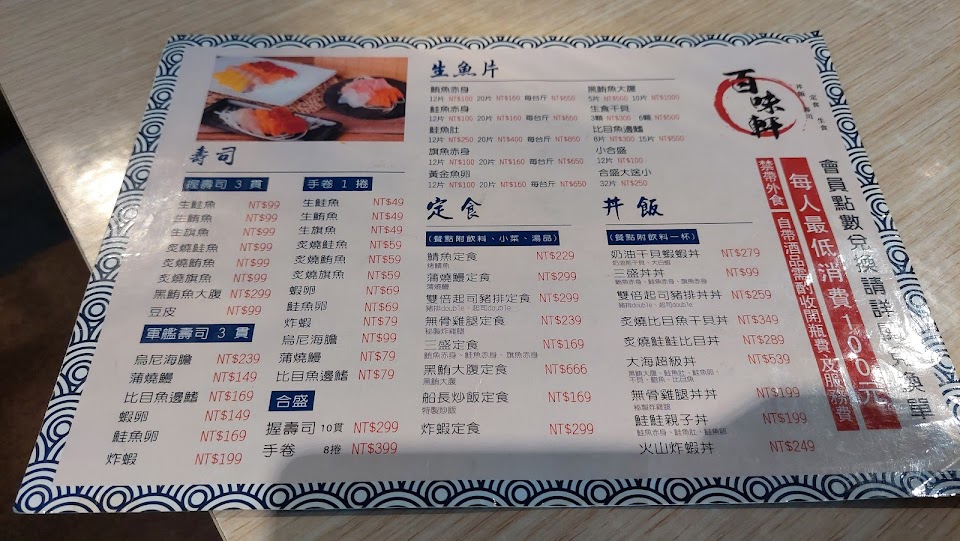 生魚片
鮪魚赤身
12片 NT$100 20片 NT$160 每台斤 NT$650
鮭魚赤身
12片 NT$100 20片 NT$160 每台斤 NT$650
鮭魚肚
12片 NT$250 20片 NT$400 每台斤 NT$850
旗魚赤身
12片 NT$100 20片 NT$160 每台斤 NT$650
黃金魚卵
12片 NT$100 20片 NT$160 每台斤 NT$650
黑鮪魚大腹
5片 NT$500 10片 NT$1000
生食干貝
3顆 NT$300 6顆 NT$600
比目魚邊鰭
8片 NT$300 15片 NT$500
小合盛
12片 NT$100
合盛大送小
32片 NT$250
百味軒
丼飯 定食
壽司 生食
壽司
握壽司 3 貫
生鮭魚 NT$99
生鮪魚 NT$99
生旗魚 NT$99
炙燒鮭魚 NT$99
炙燒鮪魚 NT$99
炙燒旗魚 NT$99
黑鮪魚大腹 NT$299
豆皮 NT$99
軍艦壽司 3 貫
烏尼海膽 NT$239
蒲燒鰻 NT$149
比目魚邊鰭 NT$169
蝦卵 NT$149
鮭魚卵 NT$169
炸蝦 NT$199
手卷 1 捲
生鮭魚 NT$49
生鮪魚 NT$49
生旗魚 NT$49
炙燒鮭魚 NT$59
炙燒鮪魚 NT$59
炙燒旗魚 NT$59
蝦卵 NT$69
鮭魚卵 NT$69
炸蝦 NT$79
烏尼海膽 NT$99
蒲燒鰻 NT$79
比目魚邊鰭 NT$79
合盛
握壽司 10貫 NT$299
手卷 8捲 NT$399
定食
(餐點附飲料、小菜、湯品)
鯖魚定食 NT$229
烤鯖魚
蒲燒鰻定食 NT$299
蒲燒鰻
雙倍起司豬排定食 NT$299
豬排double、起司double
無骨雞腿定食 NT$239
秘製炸雞腿
三盛定食 NT$169
鮪魚赤身、鮭魚赤身、旗魚赤身
黑鮪大腹定食 NT$666
黑鮪大腹
船長炒飯定食 NT$169
特製炒飯
炸蝦定食 NT$299
丼飯
(餐點附飲料一杯)
奶油干貝蝦蝦丼 NT$279
三盛丼丼 NT$99
鮪魚赤身、鮭魚赤身、旗魚赤身
雙倍起司豬排丼丼 NT$259
豬排double、起司double
炙燒比目魚干貝丼 NT$349
炙燒鮭鮭比目丼 NT$289
大海超級丼 NT$539
無骨雞腿丼丼 NT$199
秘製炸雞腿
鮭鮭親子丼 NT$199
火山炸蝦丼 NT$249
會員點數兌換請詳
每人最低消費100元
禁帶外食 自帶酒品需酌收開瓶費及服務費